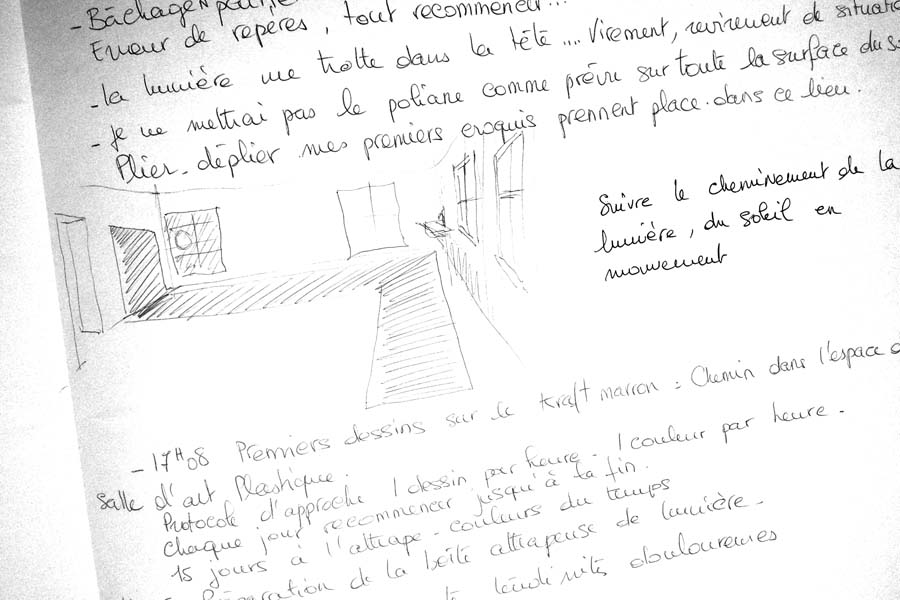 - Bâchage
Erreur de repères, tout recommencer...
- la lumière me trotte dans la tête.... Virement, revirement de situation
- Je ne mettrai pas le poliane comme prévu sur toute la surface du
Plier - déplier mes premiers croquis prennent place dans ce lieu.
Suivre le cheminement de la
lumière, du soleil en
mouvement
- 17H08 Premiers dessins sur le Kraft marron = Chemin dans l'espace
Salle d'art Plastique.
Protocole d'approche 1 dessin par heure - 1 couleur par heure -
Chaque jour recommencer jusqu'à la fin.
15 jours à l'attrape - couleurs du temps
Préparation de la boîte attrapeuse de lumière -
douloureuses